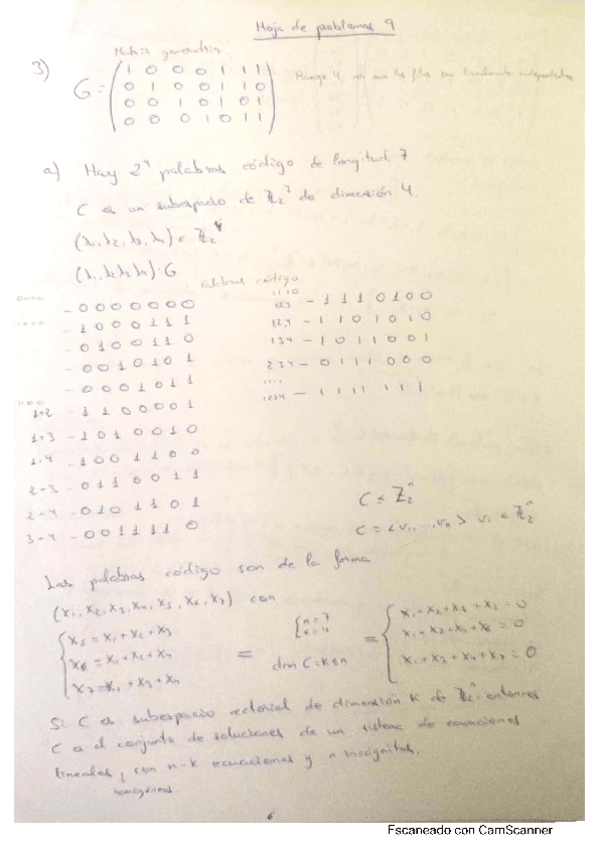 Hoja de problemas 9
Matriz generatriz
3) G = ( 1 0 0 0 1 1 1
0 1 0 0 1 1 0
0 0 1 0 1 0 1
0 0 0 1 0 1 1 )
Rango 4 las filas son linealmente independientes
a) Hay 2⁴ palabras código de longitud 7
C es un subespacio de ℤ₂⁷ de dimensión 4.
(λ₁, λ₂, λ₃, λ₄) ∈ ℤ₂⁴
(λ₁ λ₂ λ₃ λ₄) · G
Palabras código
0000 - 0 0 0 0 0 0 0
1000 - 1 0 0 0 1 1 1
- 0 1 0 0 1 1 0
- 0 0 1 0 1 0 1
- 0 0 0 1 0 1 1
1100
1+2 - 1 1 0 0 0 0 1
1+3 - 1 0 1 0 0 1 0
1+4 - 1 0 0 1 1 0 0
2+3 - 0 1 1 0 0 1 1
2+4 - 0 1 0 1 1 0 1
3+4 - 0 0 1 1 1 1 0
1110
123 - 1 1 1 0 1 0 0
124 - 1 1 0 1 0 1 0
134 - 1 0 1 1 0 0 1
234 - 0 1 1 1 0 0 0
1111
1234 - 1 1 1 1 1 1 1
C ≤ ℤ₂ⁿ
C = <v₁, ..., vₙ> vᵢ ∈ ℤ₂ⁿ
Las palabras código son de la forma
(x₁, x₂, x₃, x₄, x₅, x₆, x₇) con
{ x₅ = x₁ + x₂ + x₃
x₆ = x₁ + x₂ + x₄
x₇ = x₁ + x₃ + x₄
=
{ n = 7
k = 4
dim C = k ≤ n
= { x₁ + x₂ + x₃ + x₅ = 0
x₁ + x₂ + x₄ + x₆ = 0
x₁ + x₃ + x₄ + x₇ = 0
Si C es subespacio vectorial de dimensión k de ℤ₂ⁿ entonces
C es el conjunto de soluciones de un sistema de ecuaciones
lineales, con n-k ecuaciones y n incognitas.
homogéneas
6
Escaneado con CamScanner